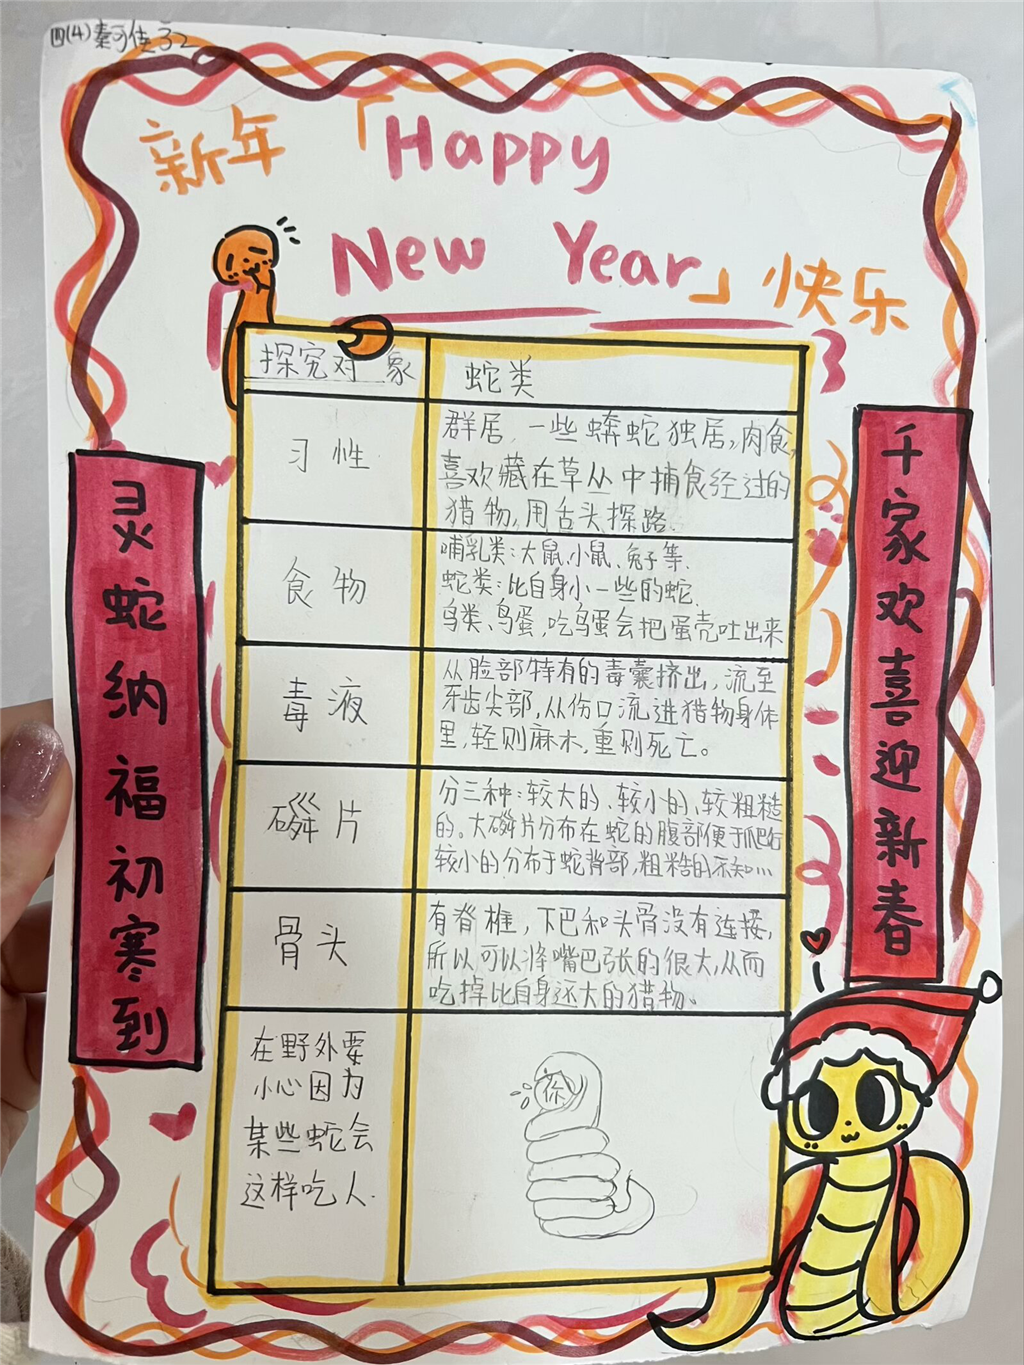 四(4) 秦可佳 32
新年「Happy
New Year」快乐
灵蛇纳福初寒到
千家欢喜迎新春
探究对象 蛇类
习性
群居,一些蟒蛇独居,肉食,
喜欢藏在草丛中捕食经过的
猎物,用舌头探路.
食物
哺乳类:大鼠、小鼠、兔子等.
蛇类:比自身小一些的蛇.
鸟类、鸟蛋,吃鸟蛋会把蛋壳吐出来
毒液
从脸部特有的毒囊挤出,流至
牙齿尖部,从伤口流进猎物身体
里,轻则麻木,重则死亡。
磷片
分三种:较大的、较小的、较粗糙
的。大磷片分布在蛇的腹部便于爬行
较小的分布于蛇背部,粗糙的不知…
骨头
有脊椎,下巴和头骨没有连接,
所以可以将嘴巴张的很大,从而
吃掉比自身还大的猎物。
在野外要
小心因为
某些蛇会
这样吃人.
你